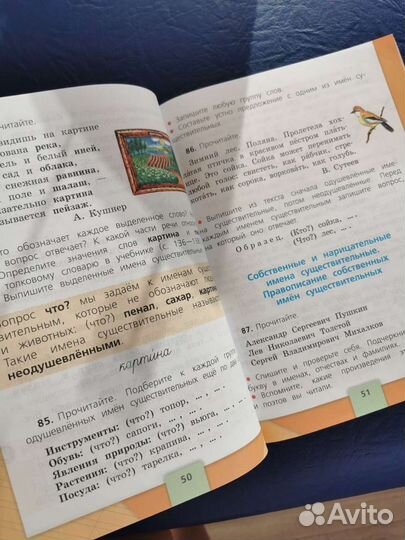 читайте.
видишь, на картине
ована река,
ель и белый иней,
сад и облака,
снежная равнина,
поле и шалаш, —
ательно картина
зывается пейзаж.
А. Кушнер
обозначает каждое выделенное слово?
вопрос отвечает? К какой части речи
Определите значения слов картина
толковому словарю в учебнике (с. 136—1
Выпишите выделенные имена существительные
опрос что? мы задаём к именам
вительным, которые не обозначают
и животных: (что?) пенал, сахар,
Такие имена существительные называют
неодушевлёнными.
картина
85. Прочитайте. Подберите к каждой
одушевлённых имён существительных ещё по
Инструменты: (что?) топор, ... , ... .
Обувь: (что?) сапоги, ... , ... .
Явления природы: (что?) вьюга, ... , ... .
Растения: (что?) крапива, ... , ... .
Посуда: (что?) тарелка, ... , ... .
50
Запишите любую группу слов.
Составьте устно предложение с одним из имён су-
ществительных.
86. Прочитайте.
Зимний лес. Поляна. Пролетела хох-
латая птичка в красивом пёстром
Это сойка. Сойка может перенимать
любой голос: свистеть, как рябчик,
котать, как сорока, ворковать, как голубь.
В. Сутеев
Выпишите из текста сначала одушевлённые
имена существительные, потом неодушевлённые. Перед
каждым именем существительным запишите вопрос,
на который оно отвечает.
Образец. (Кто?) сойка, ... .
(Что?) лес, ... .
Собственные и нарицательные
имена существительные.
Правописание собственных
имён существительных
87. Прочитайте.
Александр Сергеевич Пушкин
Лев Николаевич Толстой
Сергей Владимирович Михалков
Спишите и проверьте себя. Подчеркни
букву в именах, отчествах и фамилиях.
Вспомните, какие произведения
и поэтов вы читали.
51
Avito